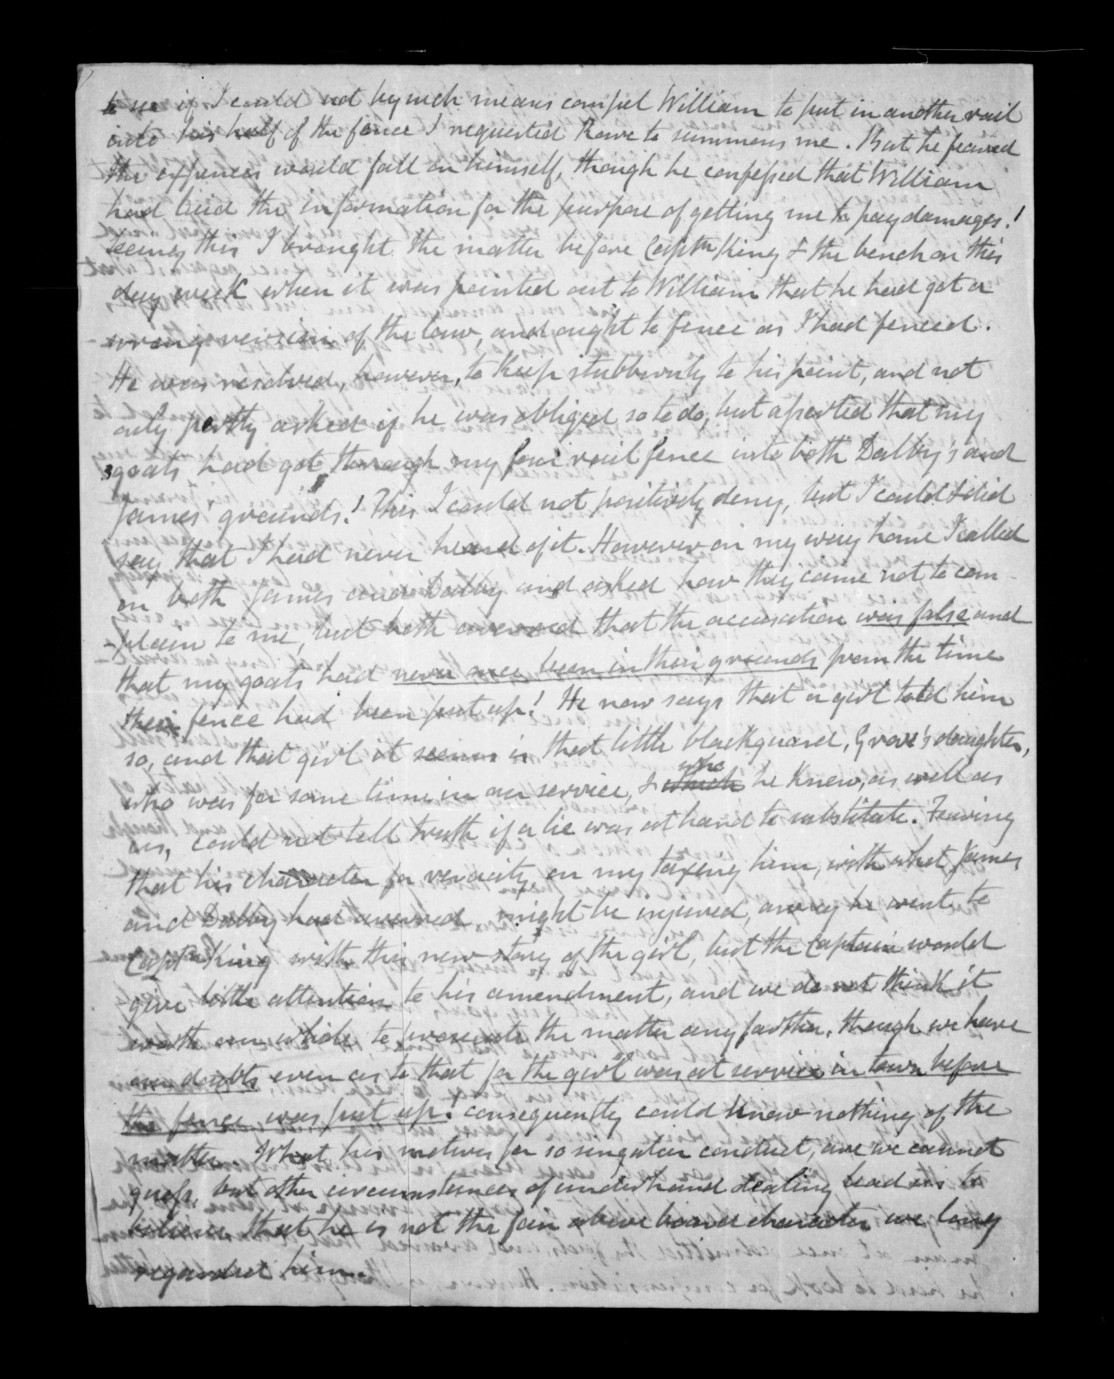 to me if I could not by such means compel William to put in another rail
into his half of the fence I requested Rowe to summons me. But he feared
the expences would fall on himself, though he confessed that William
had laid the information for the purpose of getting me to pay damages!
Seeing this I brought the matter before Captn King & the bench on this
day week when it was pointed out to William that he had got a
wrong version of the law, and ought to fence as I had fenced.
He was resolved, however, to keep stubbornly to his point, and not
only pertly asked if he was obliged so to do, but asserted that my
goats had got through my four rail fence into both Dalby's and
James' grounds! This I could not positively deny, but I could & did
say that I had never heard of it. However on my way home I called
on both James and Dalby and asked how they came not to com-
-plain to me, but both averred that the accusation was false and
that my goats had never once been in their grounds from the time
their fence had been put up! He now says that a girl told him
so, and that girl it seems is that little blackguard, Grove's daughter,
who was for some time in our service, & which who he knew, as well as
us, could not tell truth if a lie was at hand to substitute. Fearing
that his character for veracity, on my taxing him, with what James
and Dalby had averred, might be injured, away he went to
Captn King with this new story of the girl, but the Captain would
give little attention to his amendment, and we do not think it
worth our while to the matter any farther, though we have
our doubts even as to that for the girl was at service in town before
the fence was put up! consequently could know nothing of the
matter. What his motives for so singular conduct, are we cannot
guess, but other circumstances of underhand dealing lead us to
believe that he is not the fair above board character we long
regarded him.